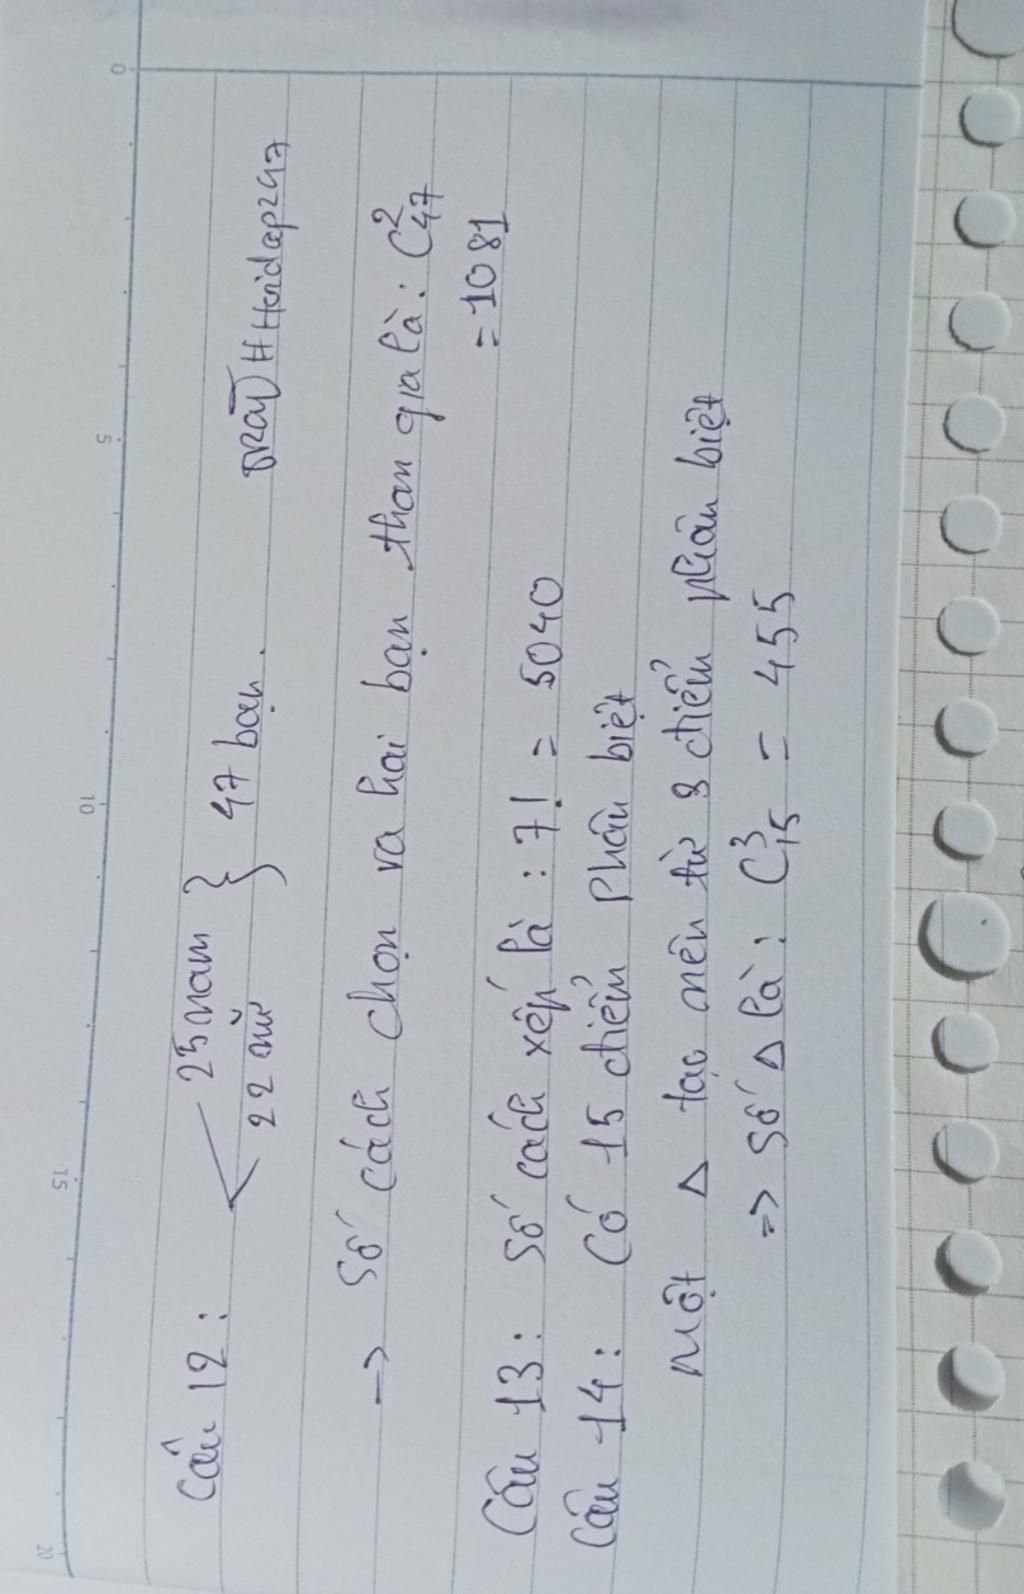 Câu 12: 25 nam
22 nữ } 47 bạn.
#Hoidap247
→ Số cách chọn ra hai bạn tham gia là: C²₄₇
= 1081
Câu 13: Số cách xếp là: 7! = 5040
Câu 14: Có 15 điểm phân biệt
Một Δ tạo nên từ 3 điểm phân biệt
=> Số Δ là: C³₁₅ = 455
0
5
10
15
20